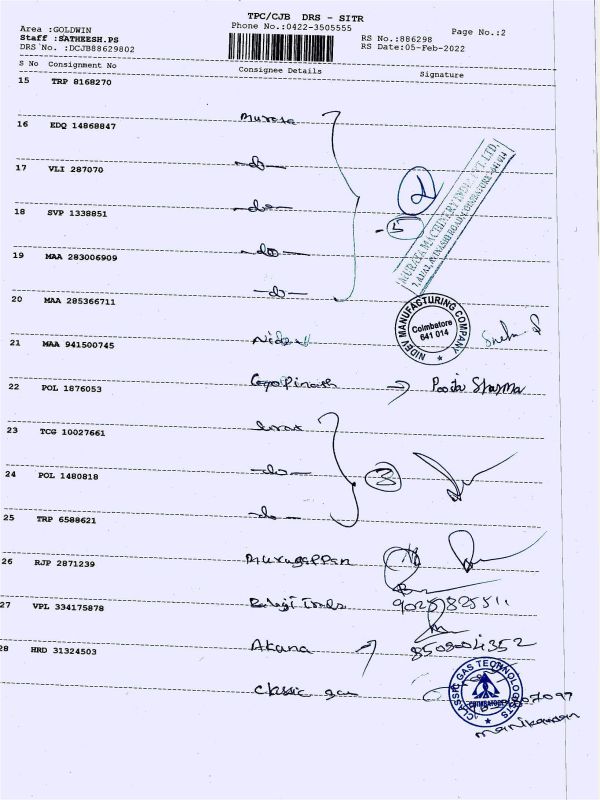 TPC/CJB DRS - SITR
Area :GOLDWIN
Phone No.:0422-3505555
Page No.:2
Staff :SATHEESH.PS
RS No.:886298
DRS No. :DCJB88629802
RS Date:05-Feb-2022
S No Consignment No
Consignee Details
Signature
15 TRP 8168270
Murata
16 EDQ 14868847
-do-
17 VLI 287070
-do-
18 SVP 1338851
-do-
19 MAA 283006909
-do-
20 MAA 285366711
MURATA MACHINERY INDIA PVT. LTD.
5
NIDEV MANUFACTURING COMPANY
Coimbatore
641 014
21 MAA 941500745
Nidev
22 POL 1876053
Gopalinath
23 TCG 10027661
24 POL 1480818
-do-
3
25 TRP 6588621
-do-
26 RJP 2871239
Murugappan
27 VPL 334175878
28 HRD 31324503
Akana
Classic gas
CLASSIC GAS TECHNOLOGISTS
COIMBATORE
Manikandan